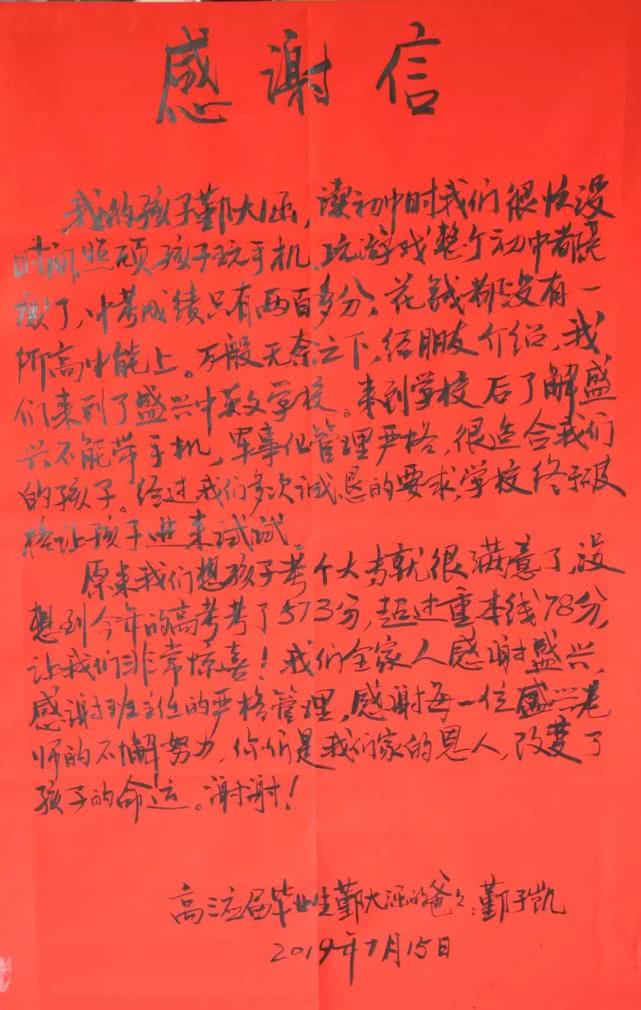 感谢信
我的孩子鄞大涵，读初中时我们很忙没
时间照顾，孩子玩手机、玩游戏整个初中都荒
废了，中考成绩只有两百多分。花钱都没有一
所高中能上。万般无奈之下，经朋友介绍，我
们来到了盛兴中英文学校。来到学校后了解盛
兴不能带手机，军事化管理严格，很适合我们
的孩子。经过我们多次诚恳的要求，学校终于破
格让孩子进来试试。
原来我们想孩子考个大专就很满意了，没
想到今年的高考考了573分，超过重本线78分，
让我们非常惊喜！我们全家人感谢盛兴，
感谢班主任的严格管理，感谢每一位盛兴老
师的不懈努力，你们是我们家的恩人，改变了
孩子的命运。谢谢！
高三应届毕业生鄞大涵的爸爸：鄞子凯
2019年7月15日